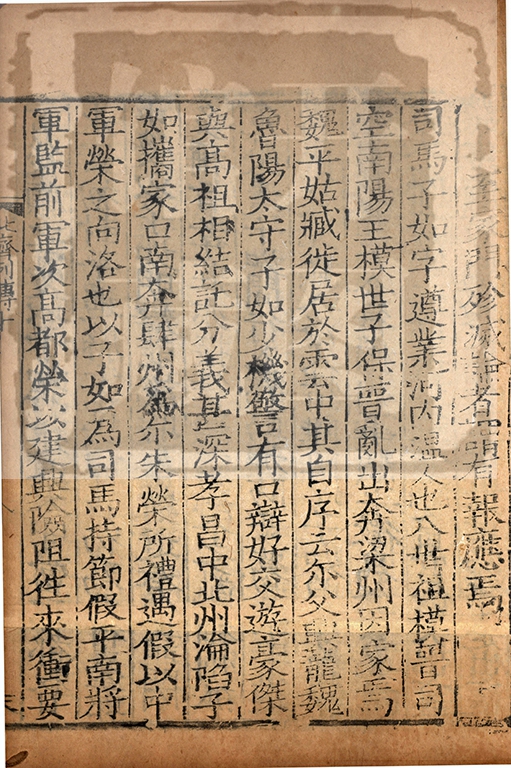 至家門殄滅論者謂有報應焉
司馬子如字遵業河內溫人也八世祖模晉司
空南陽王模世子保晉亂出奔梁州因家焉
魏平姑臧徙居於雲中其自序云尒父興龍魏
魯陽太守子如少機警有口辯好交遊豪傑
與高祖相結託分義甚深孝昌中北州淪陷子
如攜家口南奔肆州為尒朱榮所禮遇假以中
軍榮之向洛也以子如為司馬持節假平南將
軍監前軍次高都榮以建興險阻往來衝要
北齊列傳十